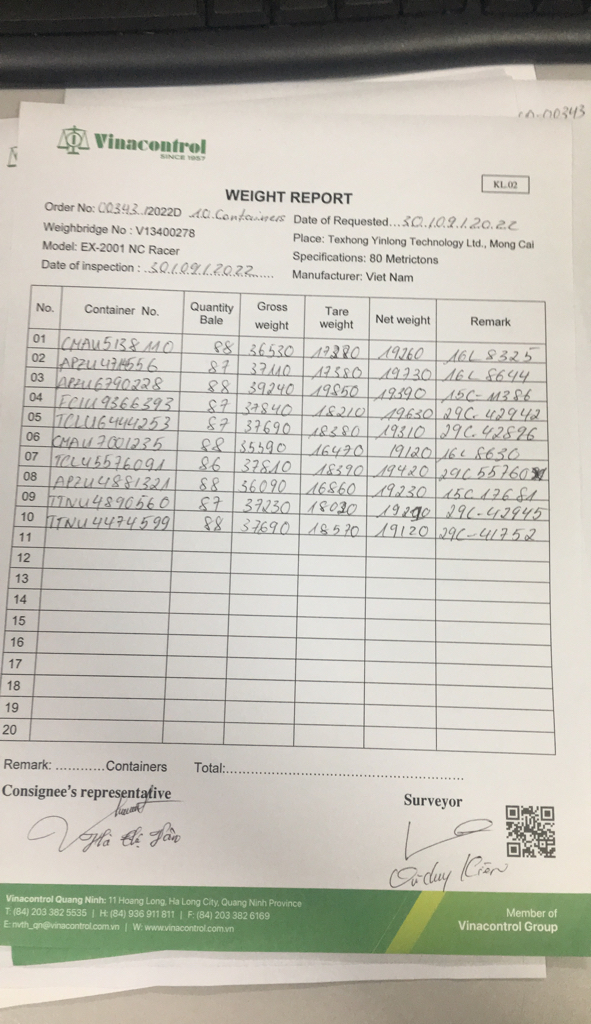 00343
Vinacontrol
SINCE 1957
KL.02
WEIGHT REPORT
Order No: 00343./2022D 10.Containers Date of Requested...30./.09./.20.22
Weighbridge No : V13400278
Place: Texhong Yinlong Technology Ltd., Mong Cai
Model: EX-2001 NC Racer
Specifications: 80 Metrictons
Date of inspection : .30./.09./.2022......
Manufacturer: Viet Nam
No. Container No. Quantity Bale Gross weight Tare weight Net weight Remark
01 CMAU5138110 88 36530 17270 19260 16L 8325
02 87 37110 17380 19730 16L 8644
03 APZU6790228 88 39240 19850 19390 15C-11386
04 FCIU9366393 87 37840 18210 19630 29C-42942
05 TCLU6444253 87 37690 18380 19310 29C-42896
06 CMAU7001235 88 35590 16470 19120 16L 8630
07 TCLU5576091 86 37810 18390 19420 29C 55760
08 APZU4881321 88 36090 16860 19230 15C 17681
09 TTNU4890560 87 37230 29C-42945
10 TTNU4474599 88 37690 18570 19120 29C-41752
11
12
13
14
15
16
17
18
19
20
Remark: ............Containers Total:..............................
Consignee's representative
Surveyor
Vinacontrol Quang Ninh: 11 Hoang Long, Ha Long City, Quang Ninh Province
T: (84) 203 382 5535 | H: (84) 936 911 811 | F: (84) 203 382 6169
E: nvth_qn@vinacontrol.com.vn | W: www.vinacontrol.com.vn
Member of
Vinacontrol Group